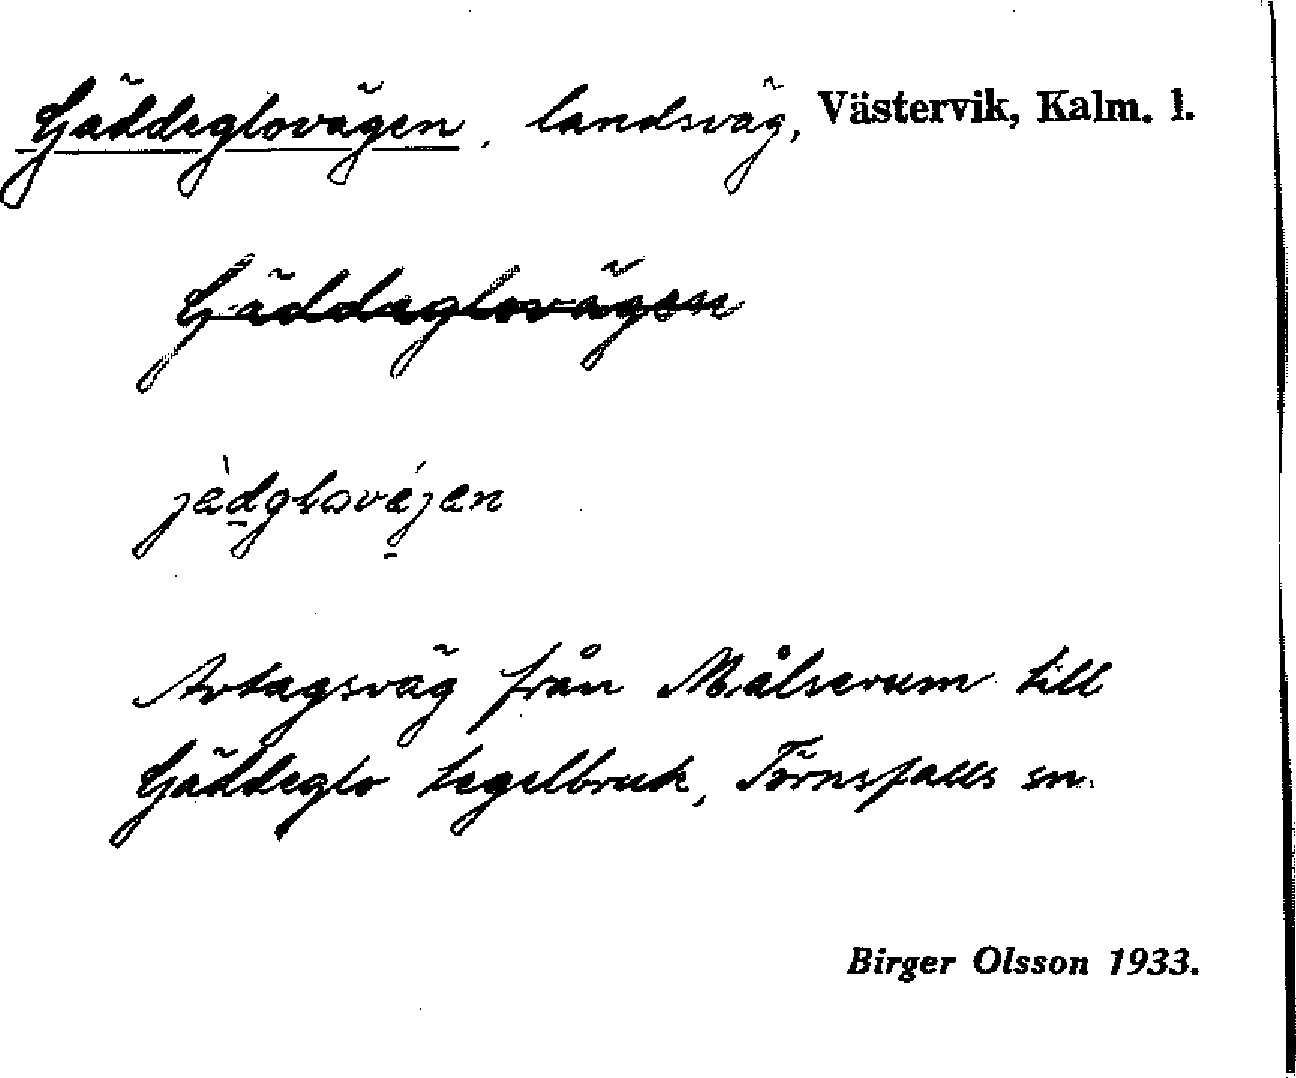 Gäddeglovägen, landsväg, Västervik, Kalm. l.
Gäddeglovägen
jèdglovéjen
Avtagsväg från Målserum till
Gäddeglo tegelbruk, Törnsfalls sn.
Birger Olsson 1933.